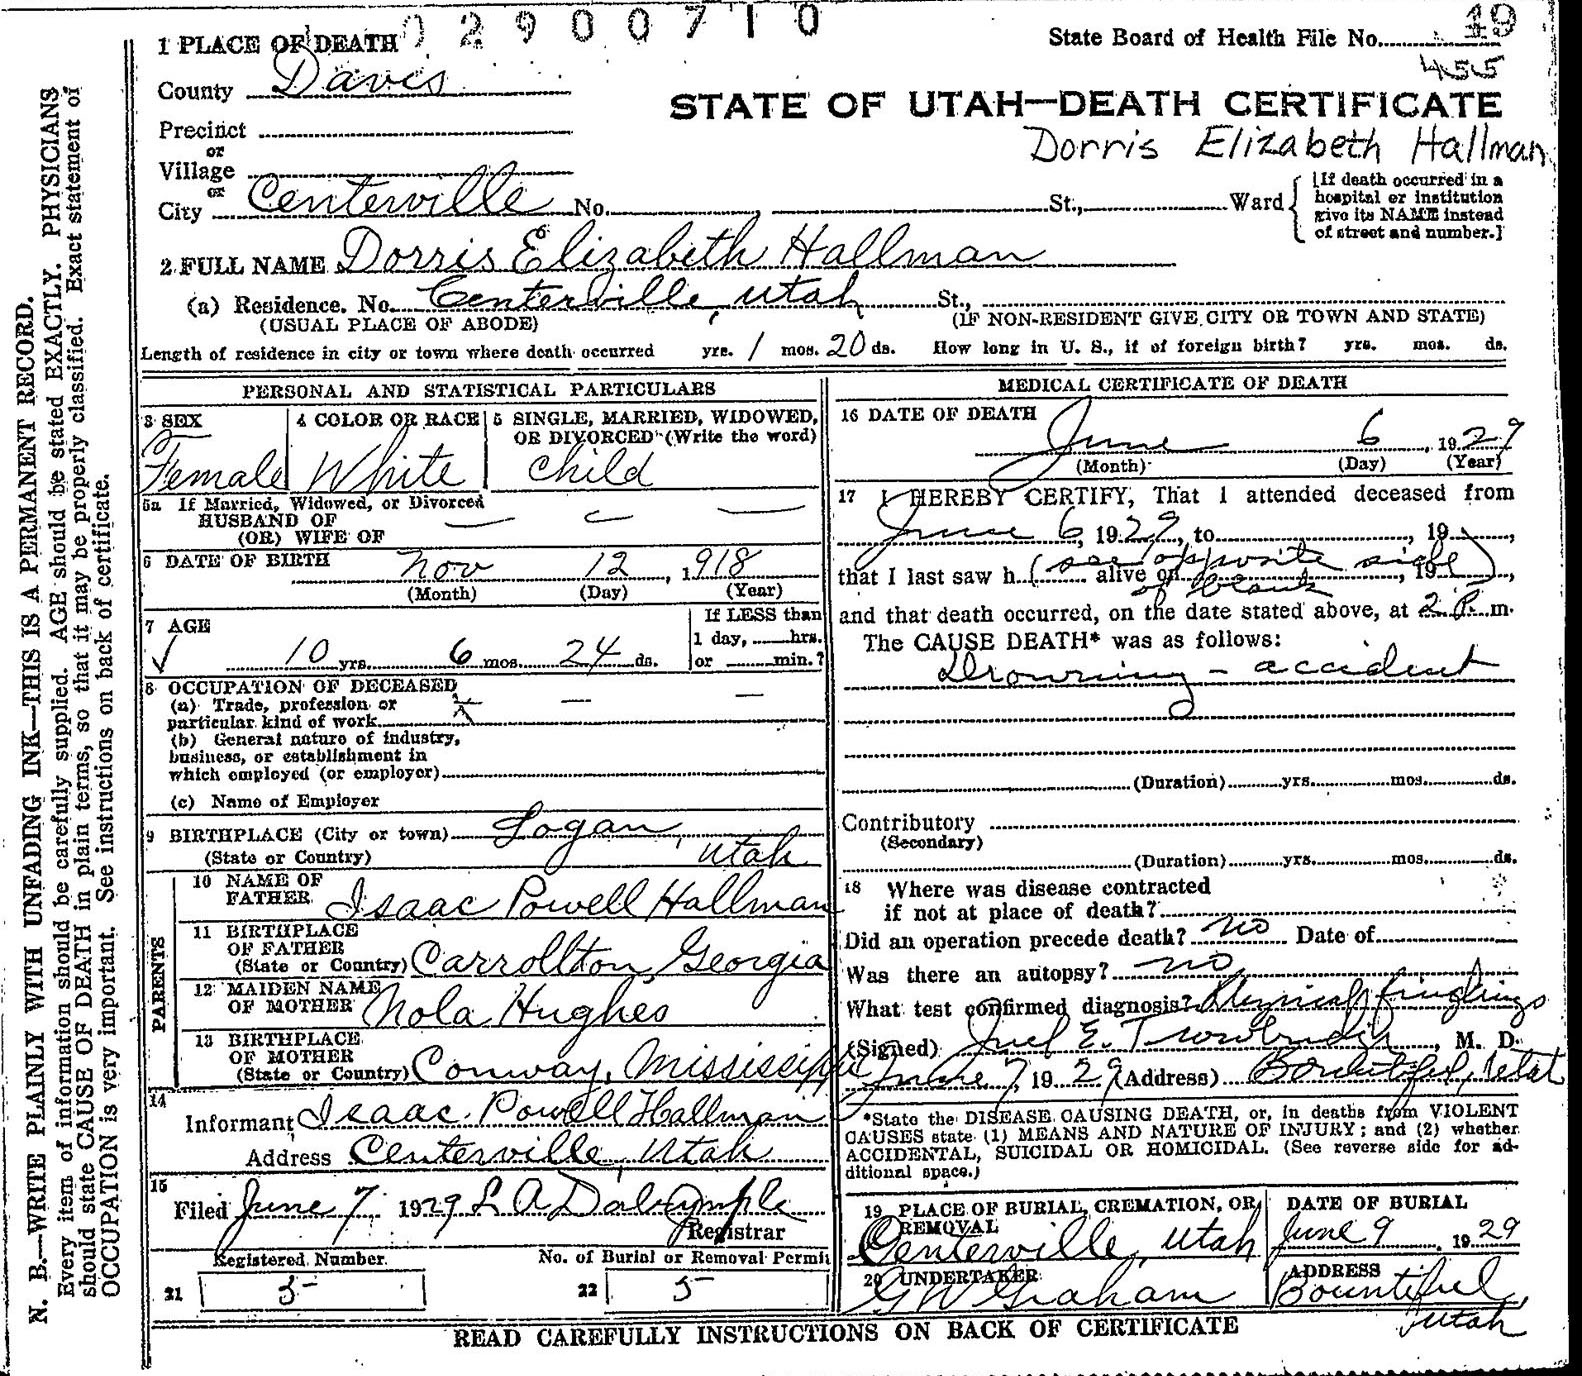 02900710
State Board of Health File No. 49
455
1 PLACE OF DEATH
County Davis
STATE OF UTAH—DEATH CERTIFICATE
Precinct
Dorris Elizabeth Hallman
or
Village
or
City Centerville No. , St., Ward
[If death occurred in a
hospital or institution
give its NAME instead
of street and number.]
2 FULL NAME Dorris Elizabeth Hallman
(a) Residence. No. Centerville, Utah St.,
(USUAL PLACE OF ABODE) (IF NON-RESIDENT GIVE CITY OR TOWN AND STATE)
Length of residence in city or town where death occurred yrs. 1 mos. 20 ds. How long in U. S., if of foreign birth? yrs. mos. ds.
PERSONAL AND STATISTICAL PARTICULARS
3 SEX 4 COLOR OR RACE 5 SINGLE, MARRIED, WIDOWED,
OR DIVORCED (Write the word)
Female White Child
5a If Married, Widowed, or Divorced
HUSBAND OF
(OR) WIFE OF
6 DATE OF BIRTH Nov 12, 1918
(Month) (Day) (Year)
7 AGE If LESS than
1 day, hrs.
10 yrs. 6 mos. 24 ds. or min.?
8 OCCUPATION OF DECEASED
(a) Trade, profession or
particular kind of work
(b) General nature of industry,
business, or establishment in
which employed (or employer)
(c) Name of Employer
9 BIRTHPLACE (City or town) Logan,
(State or Country) Utah
PARENTS
10 NAME OF
FATHER Isaac Powell Hallman
11 BIRTHPLACE
OF FATHER
(State or Country) Carrollton, Georgia
12 MAIDEN NAME
OF MOTHER Nola Hughes
13 BIRTHPLACE
OF MOTHER
(State or Country) Conway, Mississippi
14
Informant Isaac Powell Hallman
Address Centerville, Utah
15
Filed June 7 1929 L A Dalrymple
Registrar
Registered Number No. of Burial or Removal Permit
21 5 22 5
MEDICAL CERTIFICATE OF DEATH
16 DATE OF DEATH
June 6, 1929
(Month) (Day) (Year)
17 I HEREBY CERTIFY, That I attended deceased from
June 6, 1929, to , 19 ,
that I last saw h (see opposite side) alive on , 19 ,
of blank
and that death occurred, on the date stated above, at 2 P. m.
The CAUSE DEATH* was as follows:
Drowning - accident
(Duration) yrs. mos. ds.
Contributory
(Secondary)
(Duration) yrs. mos. ds.
18 Where was disease contracted
if not at place of death?
Did an operation precede death? no Date of
Was there an autopsy? no
What test confirmed diagnosis? Physical findings
(Signed) E. Trowbridge, M. D.
June 7, 1929 (Address) Bountiful, Utah
*State the DISEASE CAUSING DEATH, or, in deaths from VIOLENT
CAUSES state (1) MEANS AND NATURE OF INJURY; and (2) whether
ACCIDENTAL, SUICIDAL OR HOMICIDAL. (See reverse side for ad-
ditional space.)
19 PLACE OF BURIAL, CREMATION, OR
REMOVAL
Centerville, Utah
DATE OF BURIAL
June 9, 1929
20 UNDERTAKER
G W Graham
ADDRESS
Bountiful,
Utah
READ CAREFULLY INSTRUCTIONS ON BACK OF CERTIFICATE
N. B.—WRITE PLAINLY WITH UNFADING INK—THIS IS A PERMANENT RECORD.
Every item of information should be carefully supplied. AGE should be stated EXACTLY. PHYSICIANS
should state CAUSE OF DEATH in plain terms, so that it may be properly classified. Exact statement of
OCCUPATION is very important. See instructions on back of certificate.